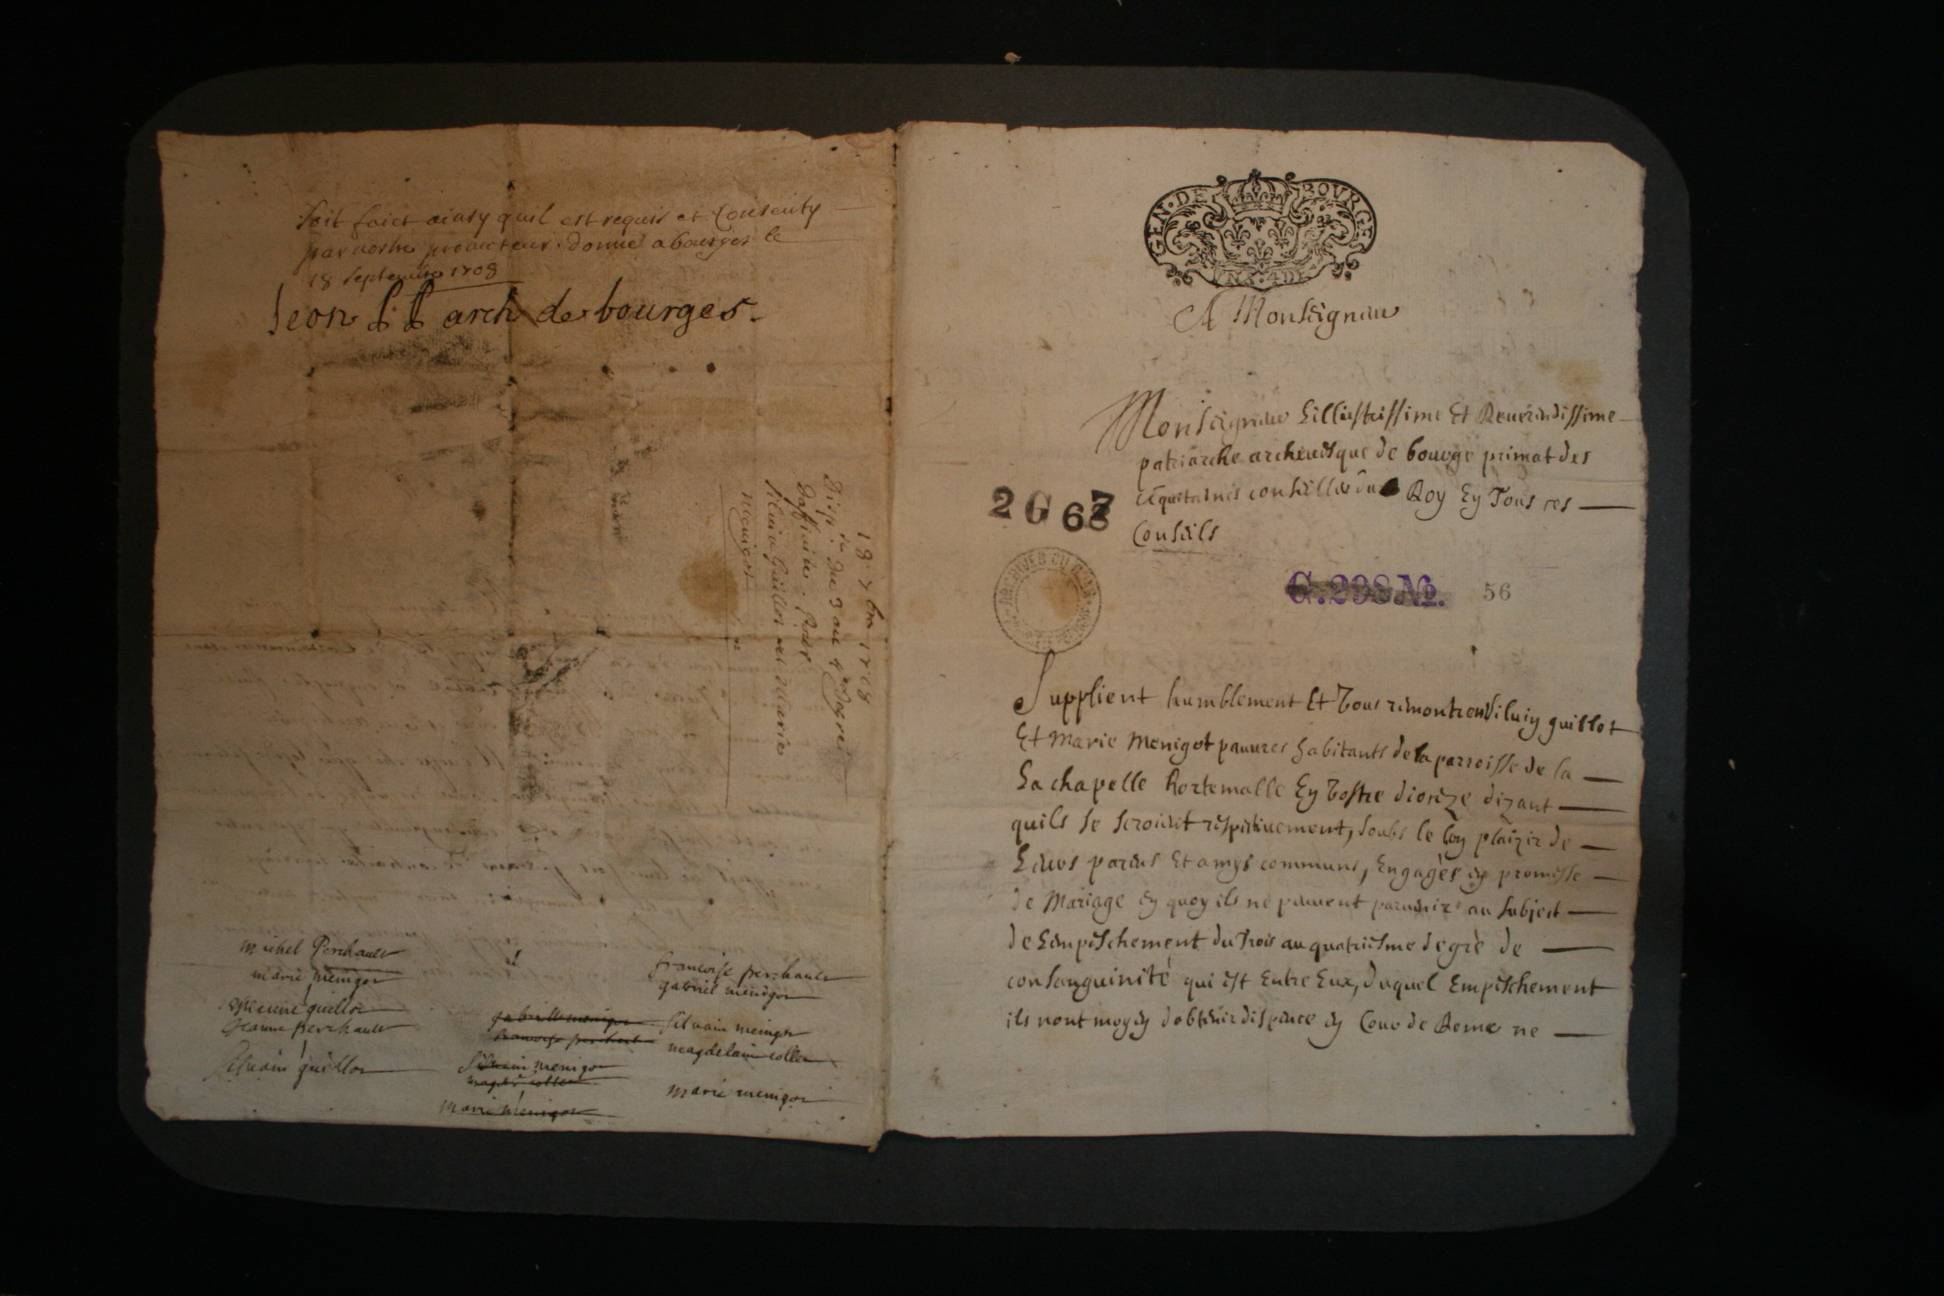 Soit faict ainsy quil est requis et consenty
par nostre promoteur. donné a bourges le
18 septembre 1708
leon P. P. arch de bourges.
18 7bre 1708
Disp. du 3 au 4e degré
Silvain Guillot et Marie
menigot
michel Perchault
marie menigot
estienne guillot
Jeanne perchault
Silvain guillot
gabriel menigot
francoise perchault
Silvain menigot
marie menigot
francoise perchault
gabriel menigot
Silvain menigot
magdelaine collen
marie menigot
GEN · DE BOURGES
A Monseigneur
Monseigneur Lillustrissime Et Reverendissime
patriarche archevesque de bourge primat des
aquitaines conseiller du Roy En Tous ses
Conseils
2 G 67
G. 298 No. 56
ARCHIVES DU CHER
Supplient humblement Et Vous remontrent Silvin guillot
Et Marie Menigot pauvres habitants de la parroisse de la
La chapelle hortemalle En Vostre diocèze dizant
quils se seroient respectivement, soubs le bon plaizir de
Leurs parens Et amys communs, Engagès en promesse
de Mariage en quoy ils ne peuvent parvenir au subject
de Lempeschement du Trois au quatriesme degrè de
consanguinité qui est Entre Eux, duquel Empeschement
ils nont moyen dobtenir dispence en Cour de Rome ne